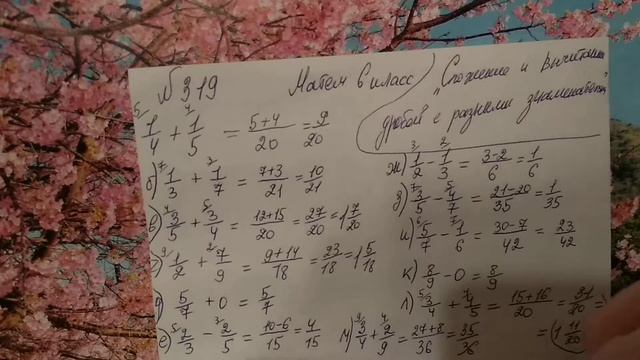 № 319 Матем 6 класс "Сложение и вычитание дробей с разными знаменателями"
1/4 + 1/5 = 5+4/20 = 9/20
б) 1/3 + 1/7 = 7+3/21 = 10/21
в) 3/5 + 3/4 = 12+15/20 = 27/20 = 1 7/20
г) 1/2 + 7/9 = 9+14/18 = 23/18 = 1 5/18
д) 5/7 + 0 = 5/7
е) 2/3 - 2/5 = 10-6/15 = 4/15
ж) 1/2 - 1/3 = 3-2/6 = 1/6
з) 3/5 - 4/7 = 21-20/35 = 1/35
и) 5/7 - 1/6 = 30-7/42 = 23/42
к) 8/9 - 0 = 8/9
л) 3/4 + 4/5 = 15+16/20 = 31/20 =
= 1 11/20
м) 3/4 + 2/9 = 27+8/36 = 35/36